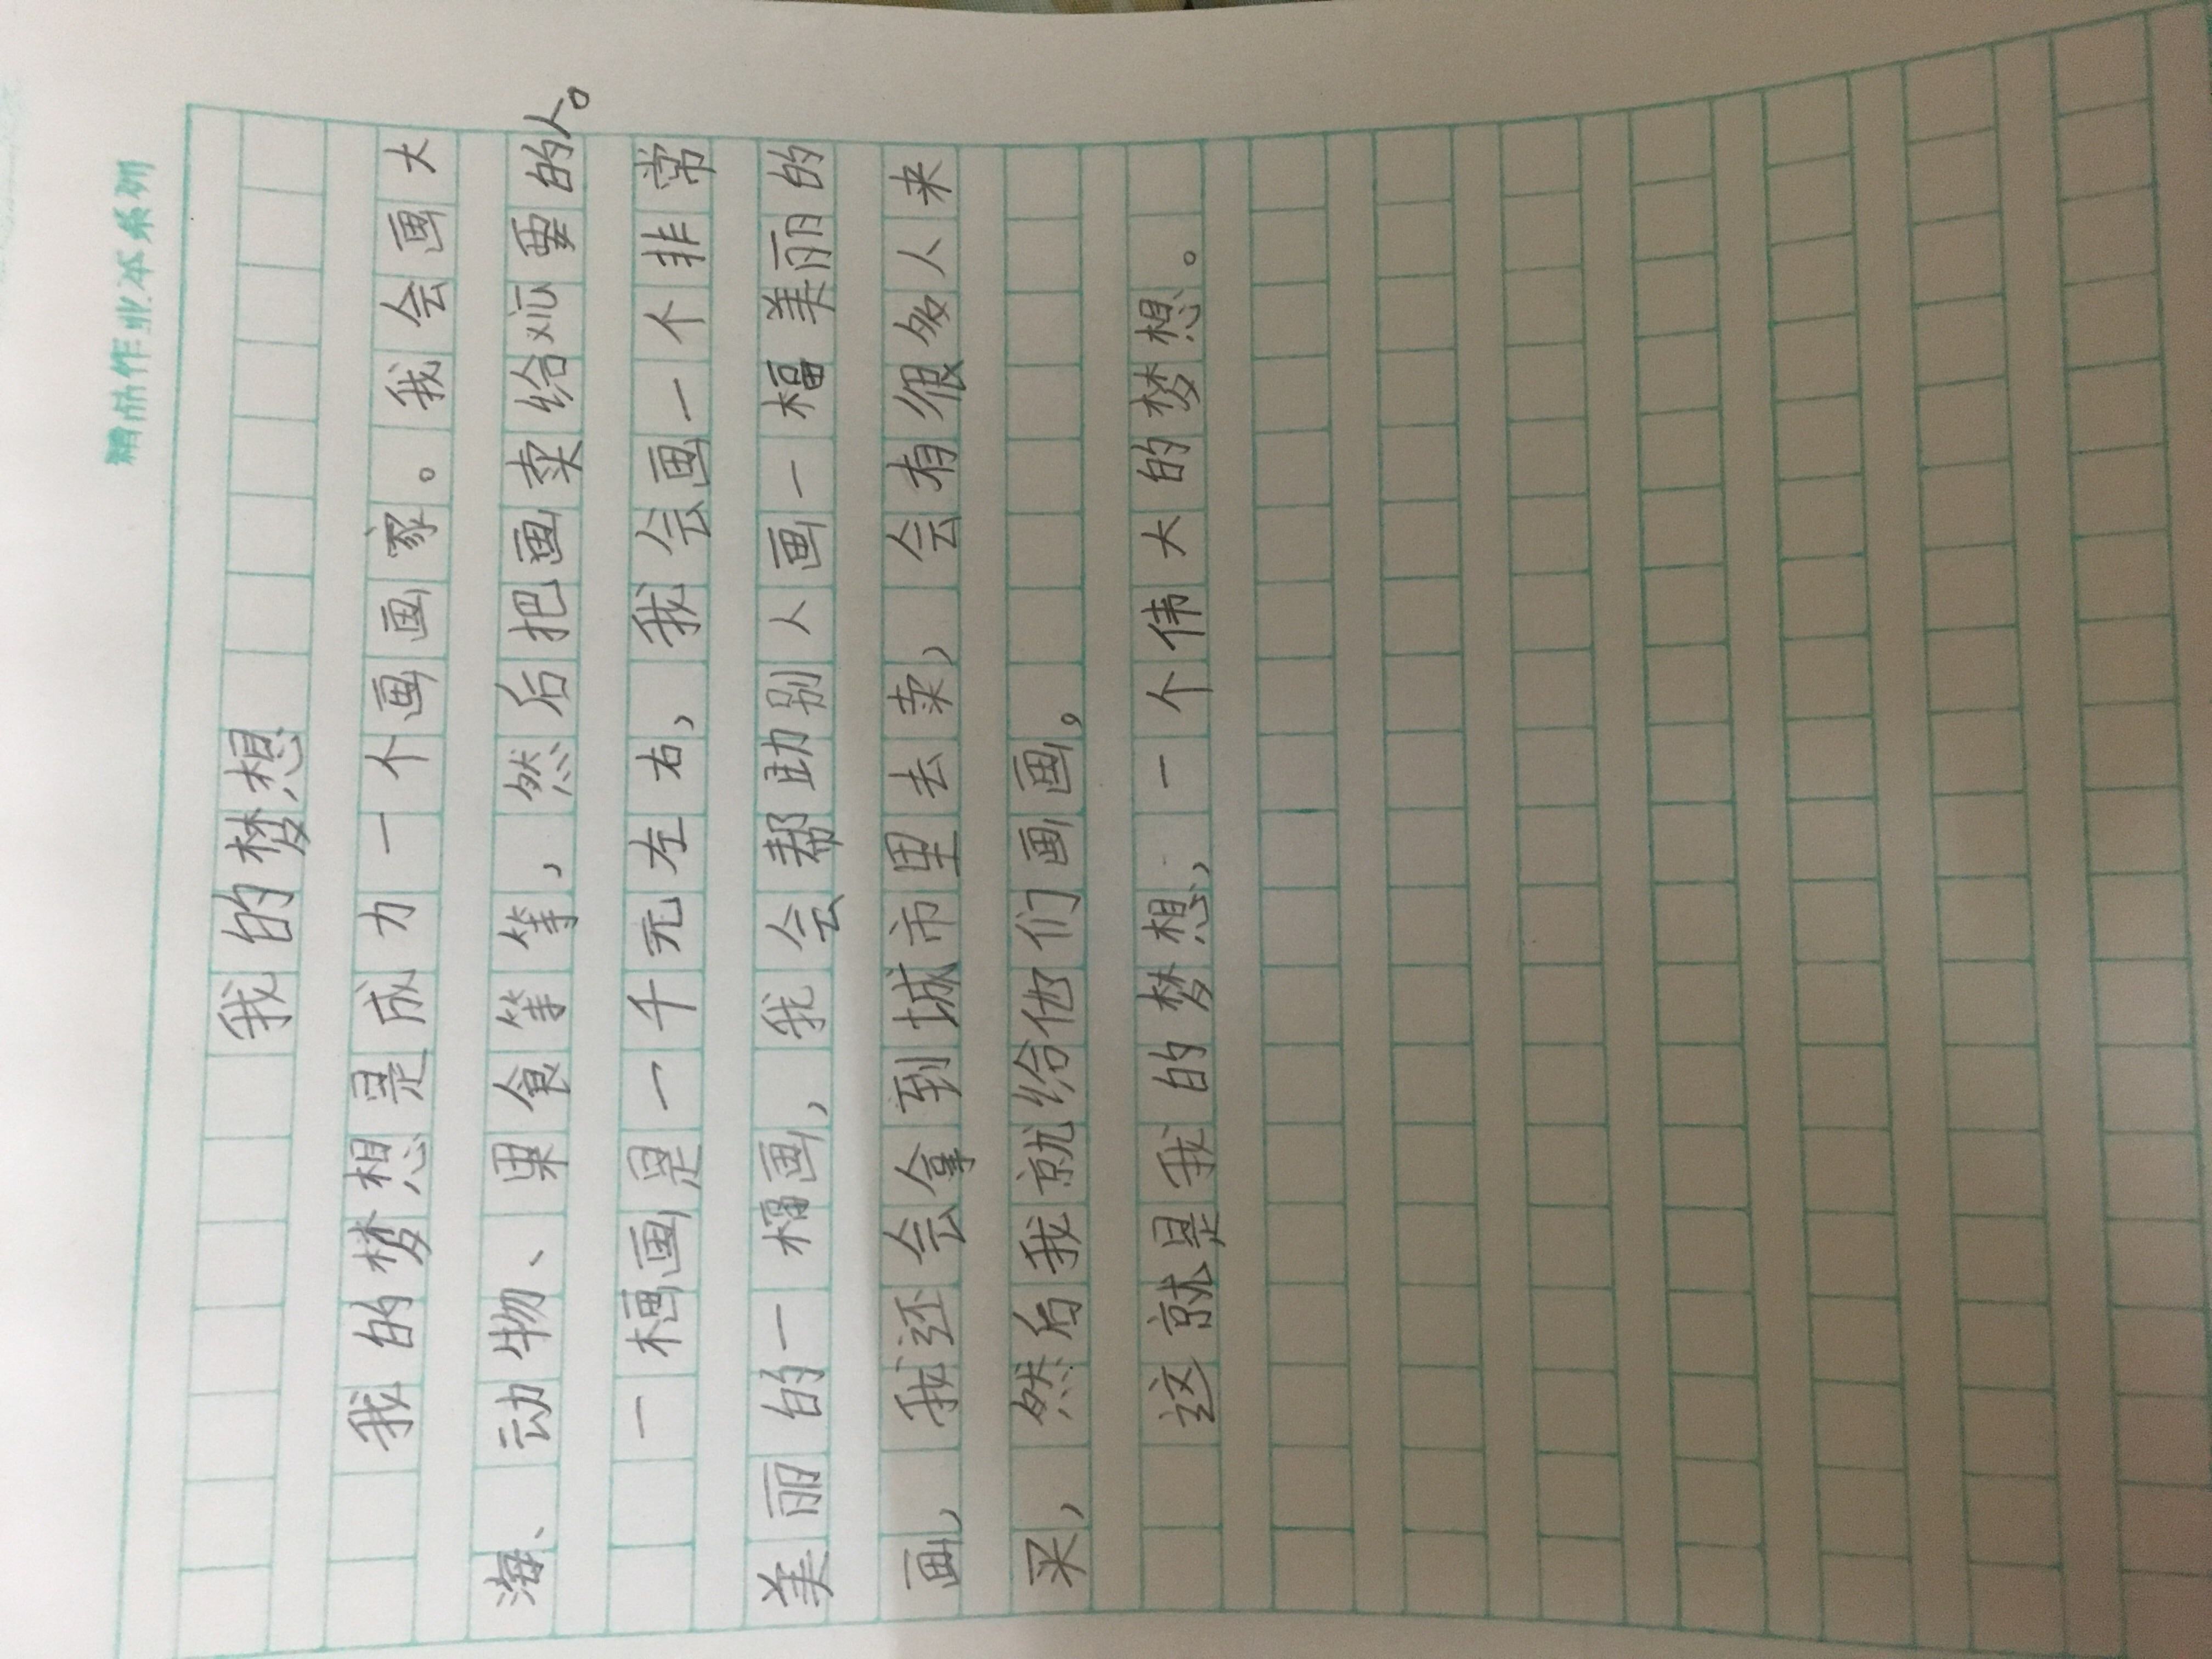 精品作业本系列
我的梦想
我的梦想是成力一个画画家。我会画大
海、动物、果食等等，然后把画卖给要的人。
一楅画是一千元左右，我会画一个非常
美丽的一楅画，我会帮助别人画一楅美丽的
画，我还会拿到城市里去卖，会有很多人来
买，然后我就给他们画画。
这就是我的梦想，一个伟大的梦想。